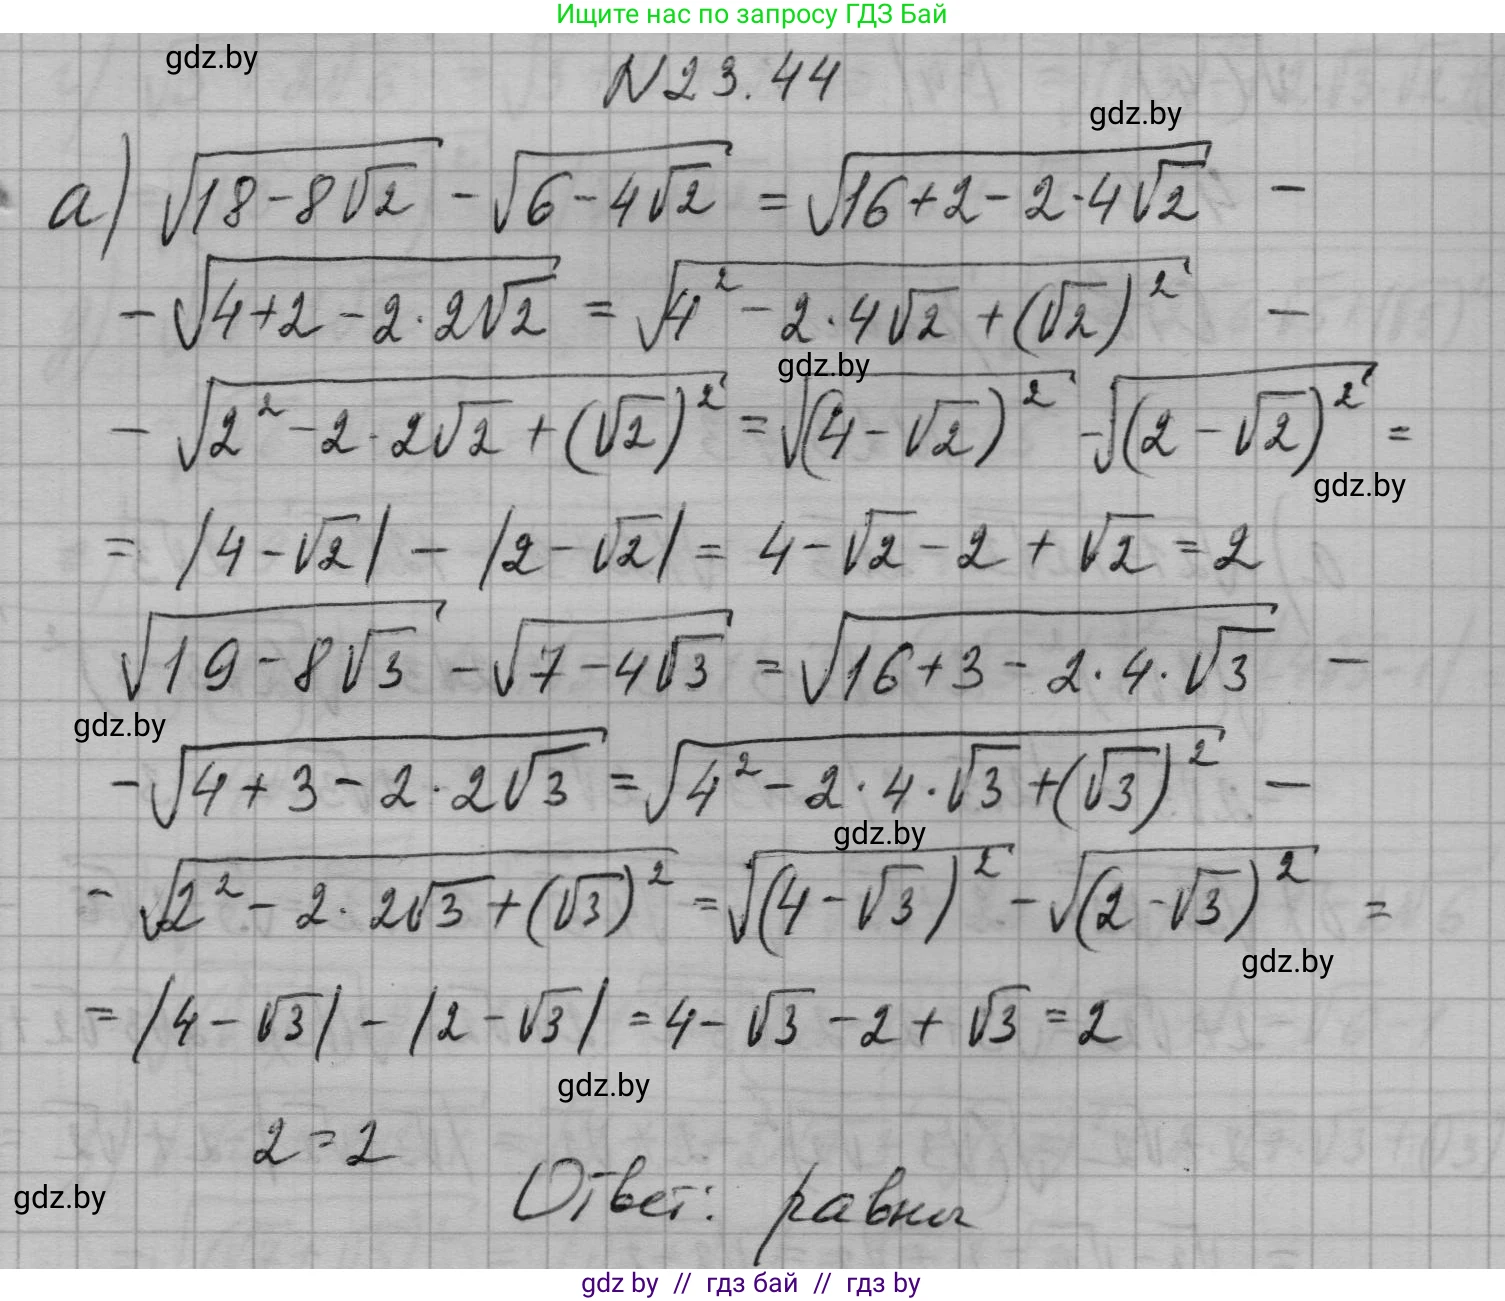 Ищите нас по запросу ГДЗ Бай
gdz.by
N23.44
gdz.by
а) √(18-8√2) - √(6-4√2) = √(16+2-2·4√2) -
- √(4+2-2·2√2) = √(4²-2·4√2+(√2)²) -
gdz.by
- √(2²-2·2√2+(√2)²) = √((4-√2)²) - √((2-√2)²) =
gdz.by
= |4-√2| - |2-√2| = 4-√2-2+√2 = 2
√(19-8√3) - √(7-4√3) = √(16+3-2·4·√3) -
gdz.by
- √(4+3-2·2√3) = √(4²-2·4·√3+(√3)²) -
gdz.by
- √(2²-2·2√3+(√3)²) = √((4-√3)²) - √((2-√3)²) =
gdz.by
= |4-√3| - |2-√3| = 4-√3-2+√3 = 2
gdz.by
2=2
Ответ: равны
gdz.by
gdz by // гдз бай // гдз by